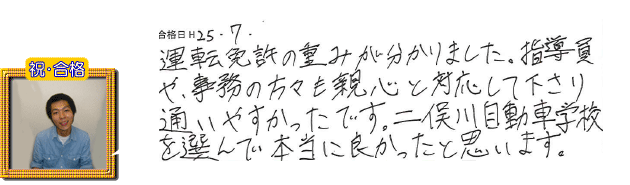 合格日 H25・7・
祝・合格
運転免許の重みが分かりました。指導員
や、事務の方々も親心と対応して下さり
通いやすかったです。二俣川自動車学校
を選んで本当に良かったと思います。